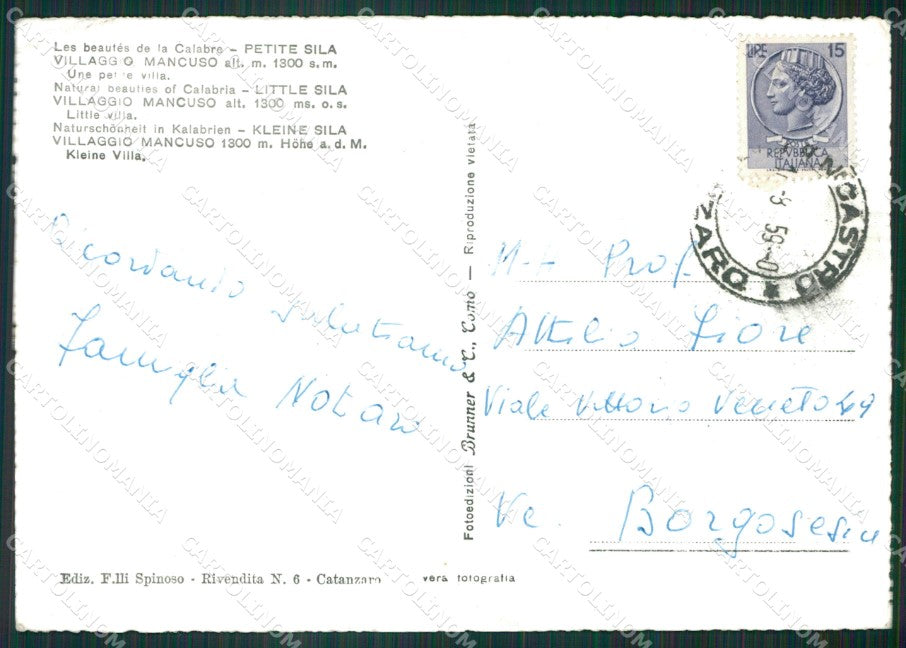 Les beautés de la Calabre – PETITE SILA
VILLAGGIO MANCUSO alt. m. 1300 s.m.
Une petite villa.
Natural beauties of Calabria – LITTLE SILA
VILLAGGIO MANCUSO alt. 1300 ms. o. s.
Little villa.
Naturschönheit in Kalabrien – KLEINE SILA
VILLAGGIO MANCUSO 1300 m. Höhe a. d. M.
Kleine Villa.
Ricordando salutiamo
famiglia Notaro
Ediz. F.lli Spinoso - Rivendita N. 6 - Catanzaro
vera fotografia
Fotoedizioni Brunner & C., Como — Riproduzione vietata
LIRE 15
REPVBBLICA
ITALIANA
NICASTRO
ZARO
59
Prof
Attilio Fiore
Viale Vittorio Veneto 49
Borgosesia
CARTOLINOMANIA